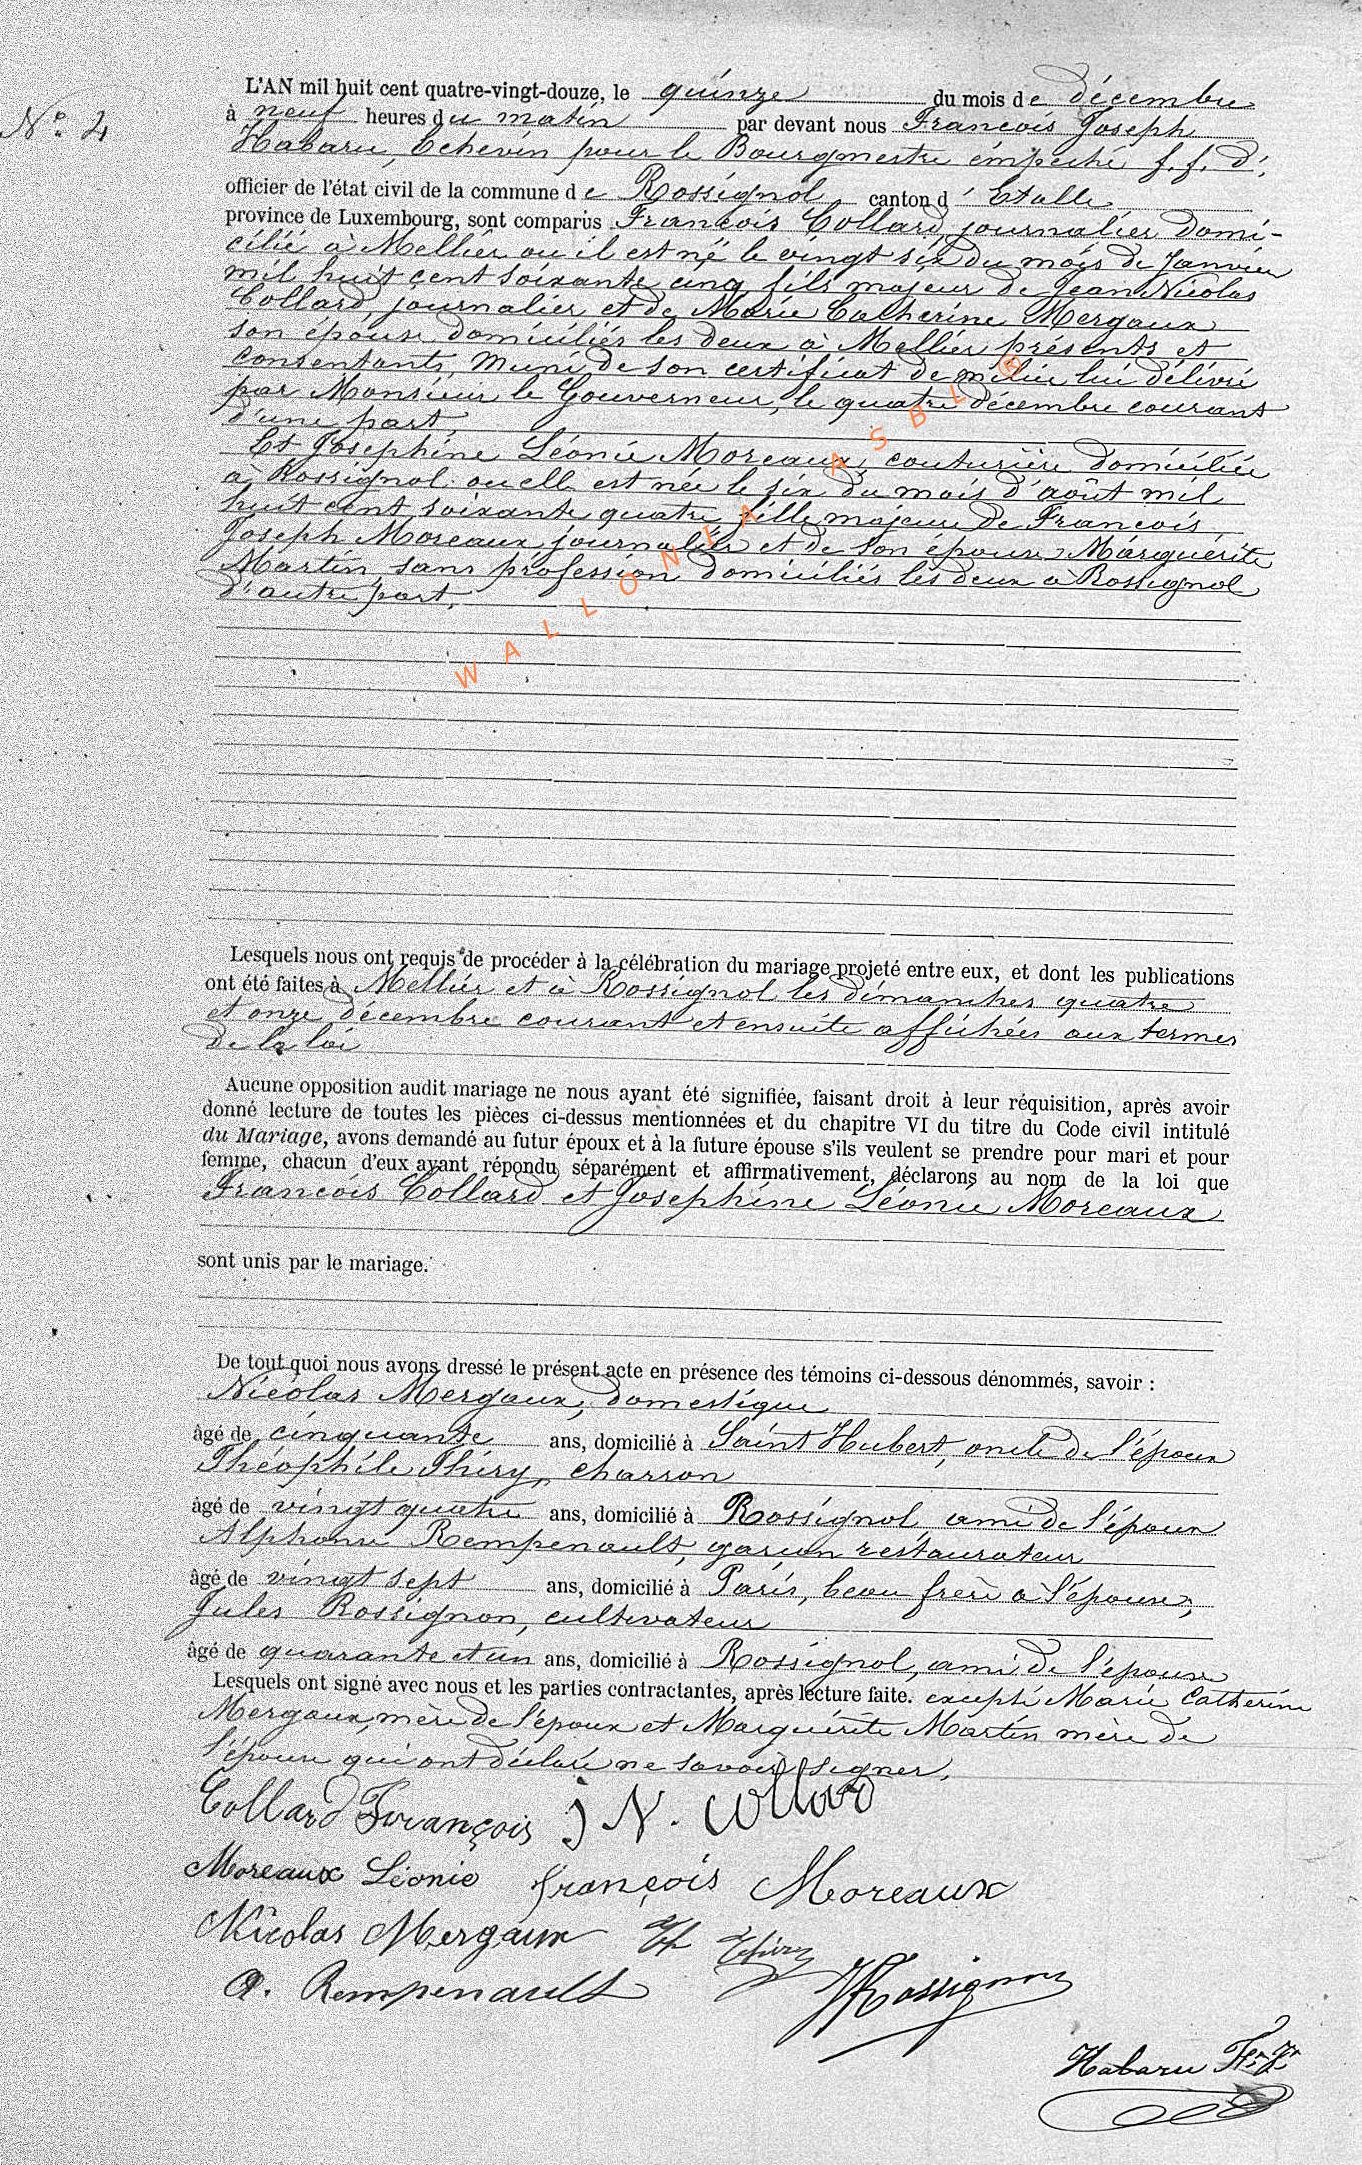 N° 4
L'AN mil huit cent quatre-vingt-douze, le quinze du mois de décembre
à neuf heures du matin par devant nous François Joseph
Habaru, Echevin pour le Bourgmestre empeché f. f. d'
officier de l'état civil de la commune de Rossignol canton d'Etalle
province de Luxembourg, sont comparus François Collard, journalier domi-
cilié à Mellier ou il est né le vingt six du mois de Janvier
mil huit cent soixante cinq fils majeur de Jean Nicolas
Collard, journalier et de Marie Catherine Mergaux
son épouse domiciliés les deux à Mellier présents et
consentants, muni de son certificat de milice lui délivré
par Monsieur le Gouverneur, le quatre décembre courant
d'une part,
Et Joséphine Léonie Moreaux, couturière domiciliée
à Rossignol ou elle est née le six du mois d'août mil
huit cent soixante quatre fille majeure de François
Joseph Moreaux journalier et de son épouse Marguérite
Martin sans profession domiciliés les deux à Rossignol
d'autre part.
WALLONIA ASBL ®
Lesquels nous ont requis de procéder à la célébration du mariage projeté entre eux, et dont les publications
ont été faites à Mellier et à Rossignol les dimanches quatre
et onze décembre courant et ensuite affichées aux termes
de la loi
Aucune opposition audit mariage ne nous ayant été signifiée, faisant droit à leur réquisition, après avoir
donné lecture de toutes les pièces ci-dessus mentionnées et du chapitre VI du titre du Code civil intitulé
du Mariage, avons demandé au futur époux et à la future épouse s'ils veulent se prendre pour mari et pour
femme, chacun d'eux ayant répondu séparément et affirmativement, déclarons au nom de la loi que
François Collard et Joséphine Léonie Moreaux
sont unis par le mariage.
De tout quoi nous avons dressé le présent acte en présence des témoins ci-dessous dénommés, savoir :
Nicolas Mergaux, domestique
âgé de cinquante ans, domicilié à Saint Hubert, oncle de l'époux
Théophile Thiry, charron
âgé de vingt quatre ans, domicilié à Rossignol ami de l'époux
Alphonse Rempenault, garçon restaurateur
âgé de vingt sept ans, domicilié à Paris, beau frère à l'épouse,
Jules Rossignon, cultivateur
âgé de quarante et un ans, domicilié à Rossignol, ami de l'époux
Lesquels ont signé avec nous et les parties contractantes, après lecture faite. excepté Marie Catherine
Mergaux, mère de l'époux et Marguérite Martin mère de
l'épouse qui ont déclaré ne savoir signer.
Collard François J N. Collard
Moreaux Léonie françois Moreaux
Nicolas Mergaux Th Thiry
A. Rempenault JRossignon
Habaru Fr. J.